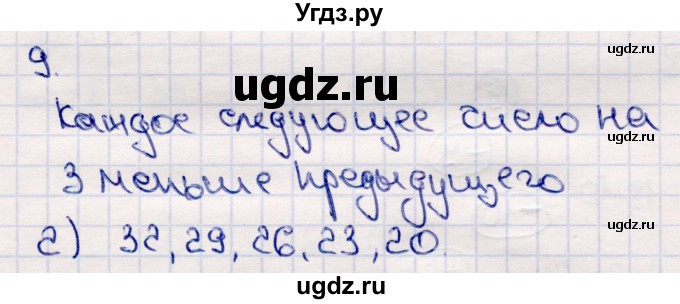 Угдз.ру
ugdz.ru
9.
ugdz.ru
Каждое следующее число на
3 меньше предыдущего
ugdz.ru
г) 32, 29, 26, 23, 20.
ugdz.ru
ugdz.ru